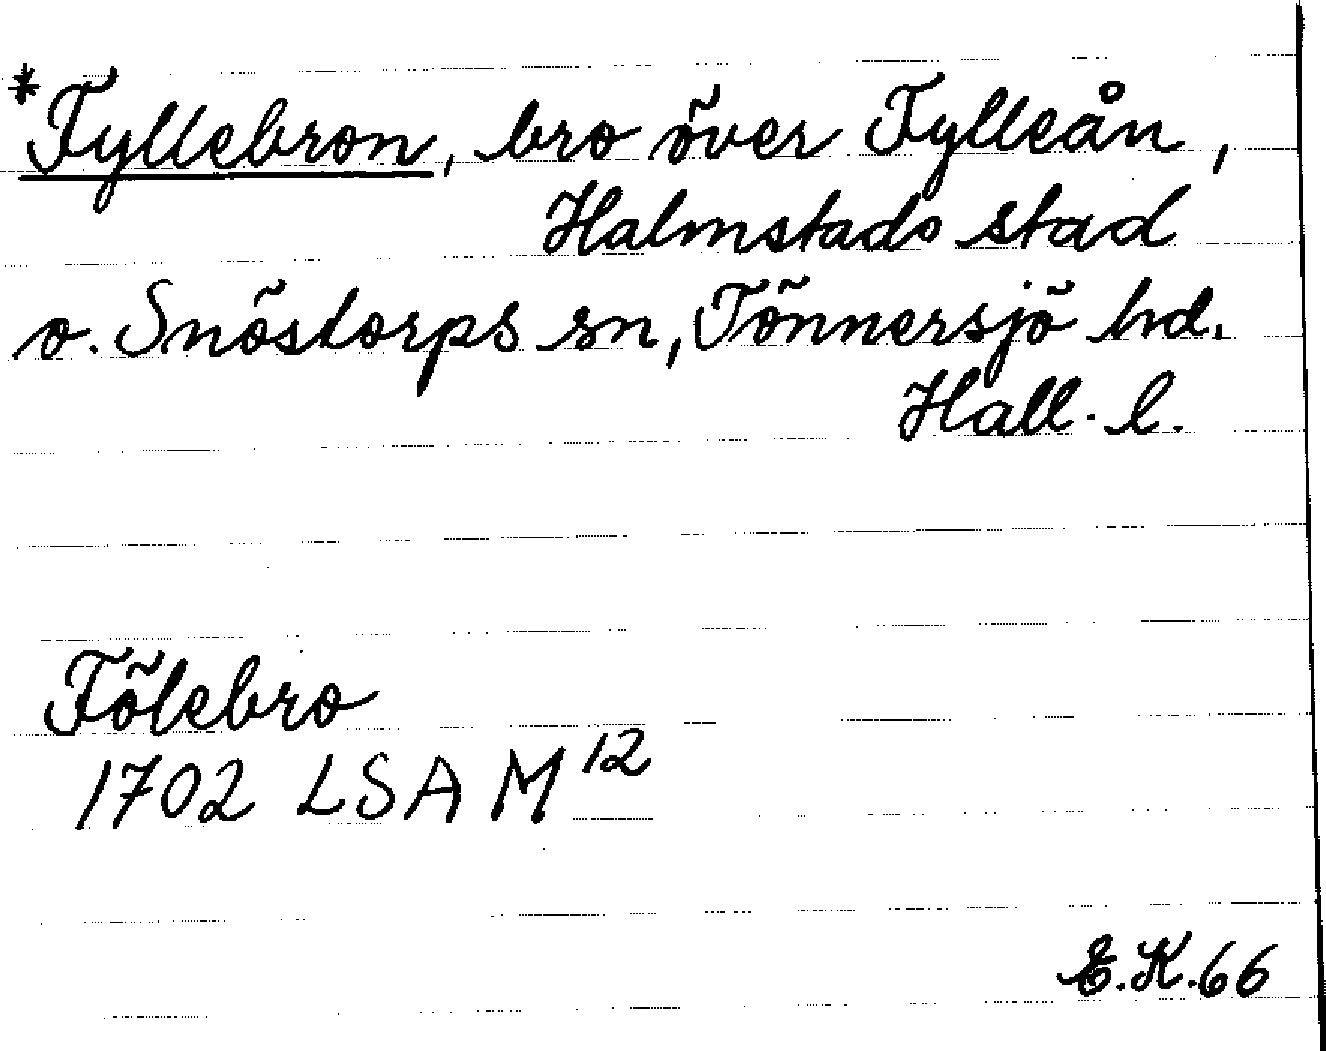 *Fyllebron, bro över Fylleån,
Halmstads stad
o. Snöstorps sn, Tönnersjö hd.
Hall. l.
Fölebro
1702 LSA M12
E.K.66